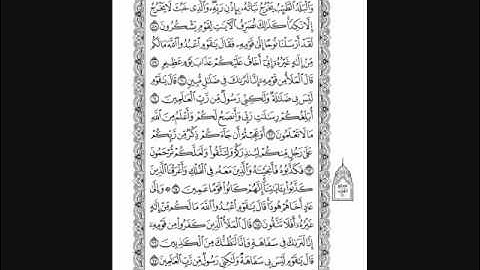 وَٱلۡبَلَدُ ٱلطَّيِّبُ يَخۡرُجُ نَبَاتُهُۥ بِإِذۡنِ رَبِّهِۦۖ وَٱلَّذِي خَبُثَ لَا يَخۡرُجُ
إِلَّا نَكِدٗاۚ كَذَٰلِكَ نُصَرِّفُ ٱلۡأٓيَٰتِ لِقَوۡمٖ يَشۡكُرُونَ
لَقَدۡ أَرۡسَلۡنَا نُوحًا إِلَىٰ قَوۡمِهِۦ فَقَالَ يَٰقَوۡمِ ٱعۡبُدُواْ ٱللَّهَ مَا لَكُم
مِّنۡ إِلَٰهٍ غَيۡرُهُۥٓ إِنِّيٓ أَخَافُ عَلَيۡكُمۡ عَذَابَ يَوۡمٍ عَظِيمٖ
قَالَ ٱلۡمَلَأُ مِن قَوۡمِهِۦٓ إِنَّا لَنَرَىٰكَ فِي ضَلَٰلٖ مُّبِينٖ قَالَ يَٰقَوۡمِ
لَيۡسَ بِي ضَلَٰلَةٞ وَلَٰكِنِّي رَسُولٞ مِّن رَّبِّ ٱلۡعَٰلَمِينَ
أُبَلِّغُكُمۡ رِسَٰلَٰتِ رَبِّي وَأَنصَحُ لَكُمۡ وَأَعۡلَمُ مِنَ ٱللَّهِ
مَا لَا تَعۡلَمُونَ أَوَعَجِبۡتُمۡ أَن جَآءَكُمۡ ذِكۡرٞ مِّن رَّبِّكُمۡ
عَلَىٰ رَجُلٖ مِّنكُمۡ لِيُنذِرَكُمۡ وَلِتَتَّقُواْ وَلَعَلَّكُمۡ تُرۡحَمُونَ
فَكَذَّبُوهُ فَأَنجَيۡنَٰهُ وَٱلَّذِينَ مَعَهُۥ فِي ٱلۡفُلۡكِ وَأَغۡرَقۡنَا ٱلَّذِينَ
كَذَّبُواْ بِـَٔايَٰتِنَآۚ إِنَّهُمۡ كَانُواْ قَوۡمًا عَمِينَ وَإِلَىٰ
عَادٍ أَخَاهُمۡ هُودٗاۚ قَالَ يَٰقَوۡمِ ٱعۡبُدُواْ ٱللَّهَ مَا لَكُم مِّنۡ إِلَٰهٍ
غَيۡرُهُۥٓۚ أَفَلَا تَتَّقُونَ قَالَ ٱلۡمَلَأُ ٱلَّذِينَ كَفَرُواْ مِن قَوۡمِهِۦٓ
إِنَّا لَنَرَىٰكَ فِي سَفَاهَةٖ وَإِنَّا لَنَظُنُّكَ مِنَ ٱلۡكَٰذِبِينَ
قَالَ يَٰقَوۡمِ لَيۡسَ بِي سَفَاهَةٞ وَلَٰكِنِّي رَسُولٞ مِّن رَّبِّ ٱلۡعَٰلَمِينَ